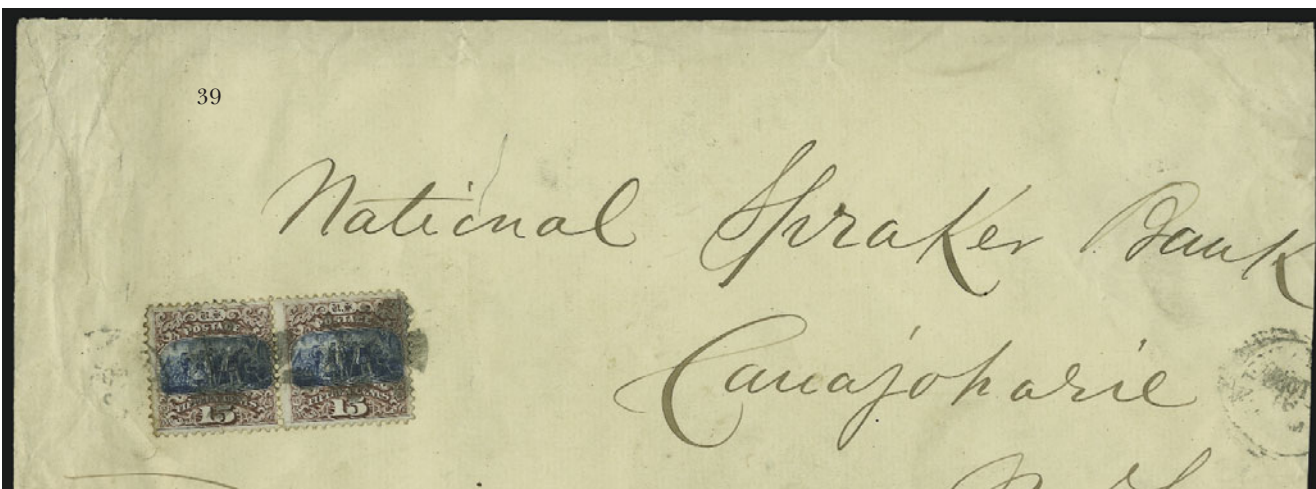 39
National Spraker Bank
Canajoharie
U.S. POSTAGE U.S. POSTAGE
15 15